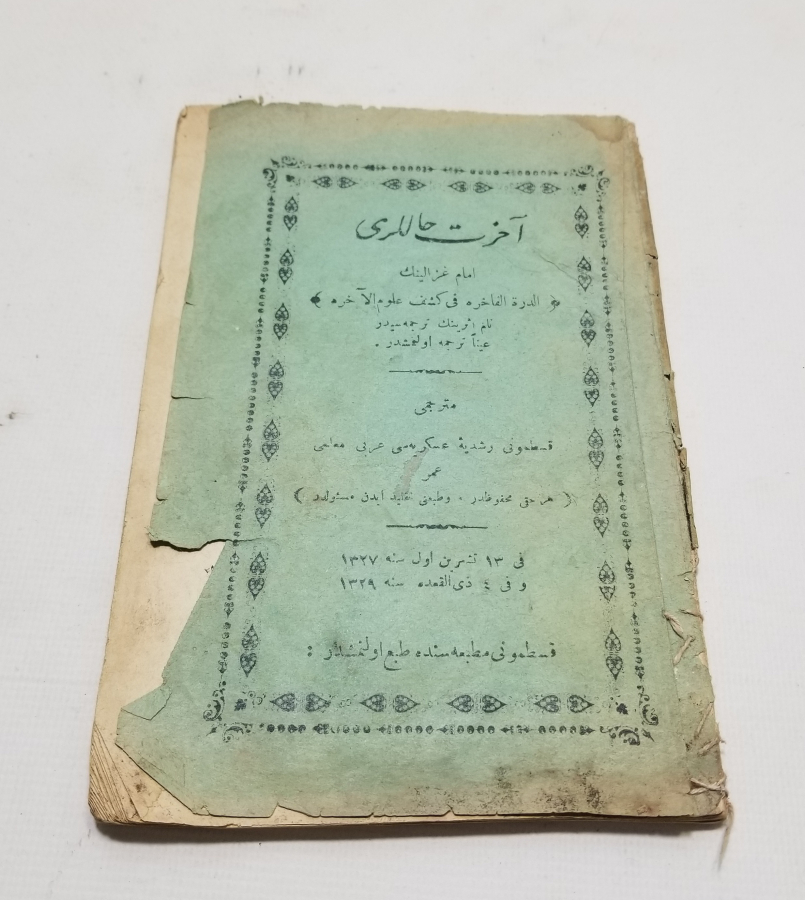 آخرت حاللرى
امام غزالينك
﴿ الدرة الفاخره فى كشف علوم الآخره ﴾
نام اثرينك ترجمه‌سيدر
عيناً ترجمه اولنمشدر .
مترجمى
قسطمونى رشدية عسكريه‌سى عربى معلمى
عمر
( هر حقى محفوظدر . وطبعنى تقليد ايدن مسئولدر )
فى ١٣ تشرين اول سنه ١٣٢٧
و فى ٤ ذى القعده سنه ١٣٢٩
قسطمونى مطبعه سنده طبع اولنمشدر :